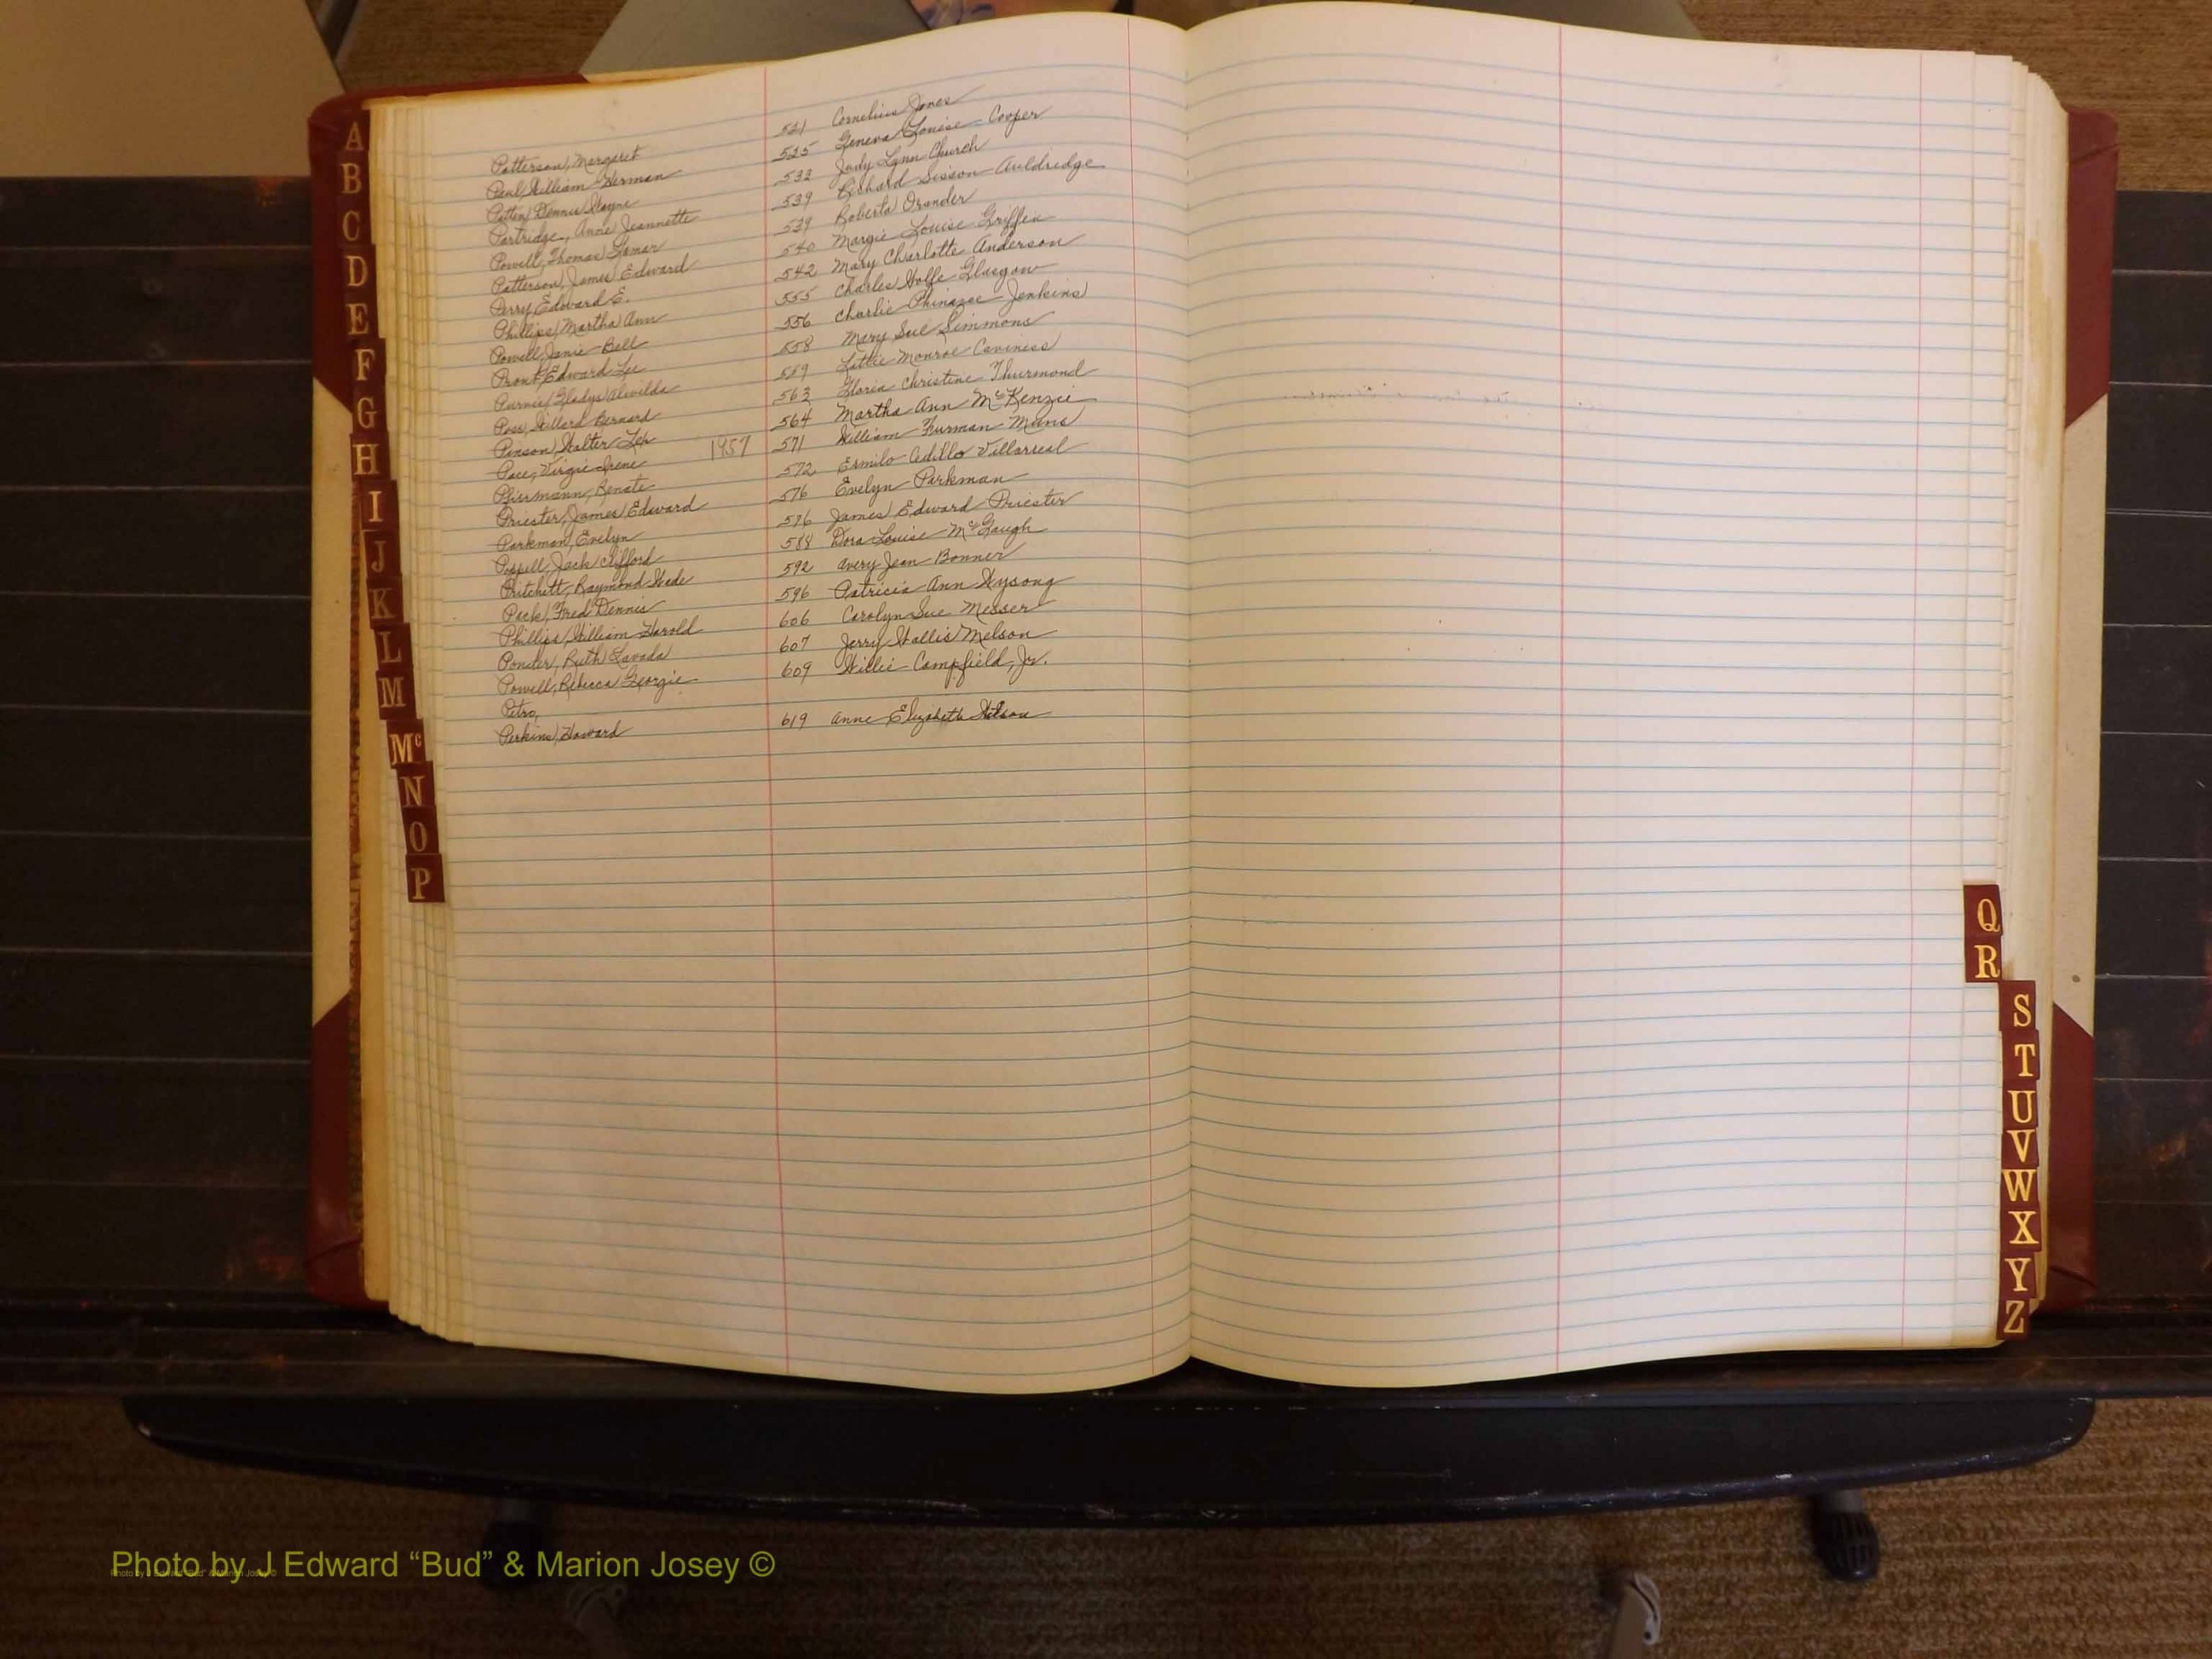 Patterson, Margaret 521 Cornelius Jones
Paul, William Herman 525 Geneva Louise Cooper
Patten, Dennis Wayne 533 Judy Lynn Church
Partridge, Anne Jeannette 539 Richard Sisson Auldredge
Powell, Thomas Lamar 539 Roberta Orander
Patterson, James Edward 540 Margie Louise Griffin
Perry, Edward E. 542 Mary Charlotte Anderson
Phillips, Martha Ann 555 Charles Wolfe Glasgow
Powell, Janie Bell 556 Charlie Phinazee Jenkins
Edward Lee 558 Mary Sue Simmons
Gladys Alwilda 559 Lottie Monroe Caviness
Poss, Willard Bernard 563 Gloria Christine Thurmond
Pinson, Walter Lee 564 Martha Ann McKenzie
Pace, Virgie Irene 1957 571 William Furman Mims
Renate 572 Ermilo Adillo Villarreal
Priester, James Edward 576 Evelyn Parkman
Parkman, Evelyn 576 James Edward Priester
Poppell, Jack Clifford 588 Dora Louise McGaugh
Pritchett, Raymond Wade 592 Avery Jean Bonner
Pack, Fred Dennis 596 Patricia Ann Wysong
Phillips, William Harold 606 Carolyn Sue Messer
Ponder, Ruth Lavada 607 Jerry Wallis Melson
Powell, Rebecca Georgie 609 Willie Campfield, Jr.
Petro,
Perkins, Howard 619 Anne Elizabeth Wilson
A
B
C
D
E
F
G
H
I
J
K
L
M
Mc
N
O
P
Q
R
S
T
U
V
W
X
Y
Z
Photo by J Edward “Bud” & Marion Josey ©
Photo by J Edward “Bud” & Marion Josey ©